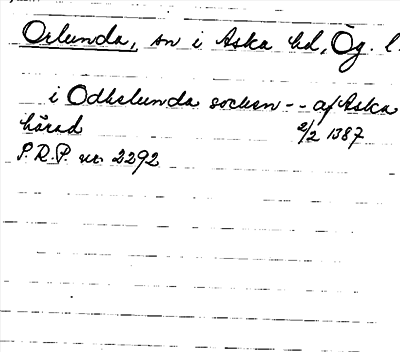 Orlunda, sn i Aska hd, Ög. l.
i Odhslunda socken -- af Aska
härad 2/2 1387
P.R.P. nr 2292